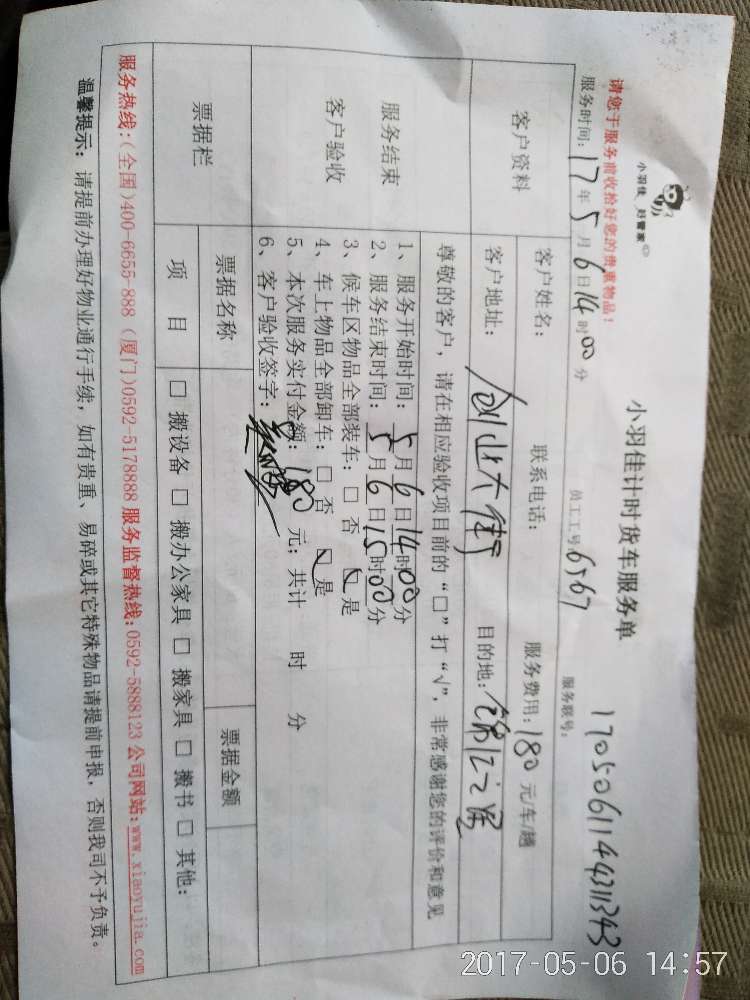 小羽佳 好管家
小羽佳计时货车服务单
170506114431343
请您于服务前收拾好您的贵重物品!
服务时间: 17年5月6日14时00分 员工工号 6567 服务联号:
客户资料
客户姓名: 联系电话: 服务费用: 180 元/车/趟
客户地址: 创业大街 目的地:
尊敬的客户, 请在相应验收项目前的“□”打“√”, 非常感谢您的评价和意见
服务结束
客户验收
1、服务开始时间: 5月6日14时00分
2、服务结束时间: 5月6日15时00分
3、候车区物品全部装车: □ 否 ☑ 是
4、车上物品全部卸车: □ 否 ☑ 是
5、本次服务实付金额: 180 元; 共计 时 分
6、客户验收签字:
票据栏
票据名称 票据金额
项 目 □ 搬设备 □ 搬办公家具 □ 搬家具 □ 搬书 □ 其他:
服务热线:(全国)400-6655-888 (厦门)0592-5178888 服务监督热线:0592-5888123 公司网站:www.xiaoyujia.com
温馨提示: 请提前办理好物业通行手续, 如有贵重、易碎或其它特殊物品请提前申报, 否则我司不予负责。
2017-05-06 14:57